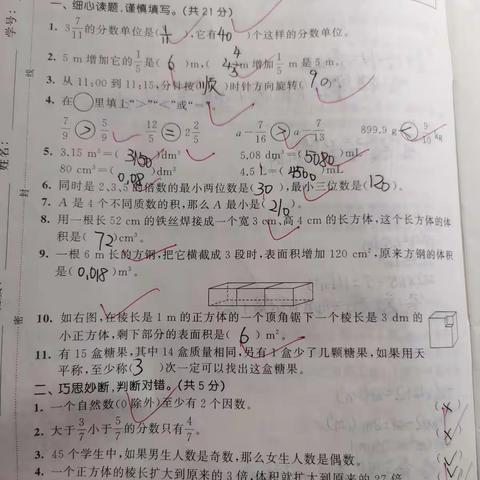 学号:
姓名:
线
封
密
一、细心读题,谨慎填写。(共21分)
1. 3 7/11的分数单位是( 1/11 ),它有( 40 )个这样的分数单位。
2. 5 m增加它的1/5是( 6 )m,( 4 4/5 )m增加1/5 m是5 m。
3. 从11:00到11:15,分针按( 顺 )时针方向旋转( 90 )°。
4. 在○里填上“>”“<”或“=”。
7/9 > 5/9 12/5 = 2 2/5 a-7/16 > a-7/13 899.9 g < 9/10 kg
5. 3.15 m³=( 3150 )dm³ 5.08 dm³=( 5080 )mL
80 cm³=( 0.08 )dm³ 4.5 L=( 4500 )mL
6. 同时是2、3、5的倍数的最小两位数是( 30 ),最小三位数是( 120 )。
7. A是4个不同质数的积,那么A最小是( 210 )。
8. 用一根长52 cm的铁丝焊接成一个宽3 cm、高4 cm的长方体,这个长方体的体
积是( 72 )cm³。
9. 一根6 m长的方钢,把它横截成3段时,表面积增加120 cm²,原来方钢的体积
是( 0.018 )m³。
10. 如右图,在棱长是1 m的正方体的一个顶角锯下一个棱长是3 dm的
小正方体,剩下部分的表面积是( 6 )m²。
11. 有15盒糖果,其中14盒质量相同,另有1盒少了几颗糖果,如果用天
平称,至少称( 3 )次一定可以找出这盒糖果。
二、巧思妙断,判断对错。(共5分)
1. 一个自然数(0除外)至少有2个因数。 (×)
2. 大于3/7小于5/7的分数只有4/7。 (×)
3. 45个学生中,如果男生人数是奇数,那么女生人数是偶数。 (√)
4. 一个正方体的棱长扩大到原来的3倍,体积就扩大到原来的27倍